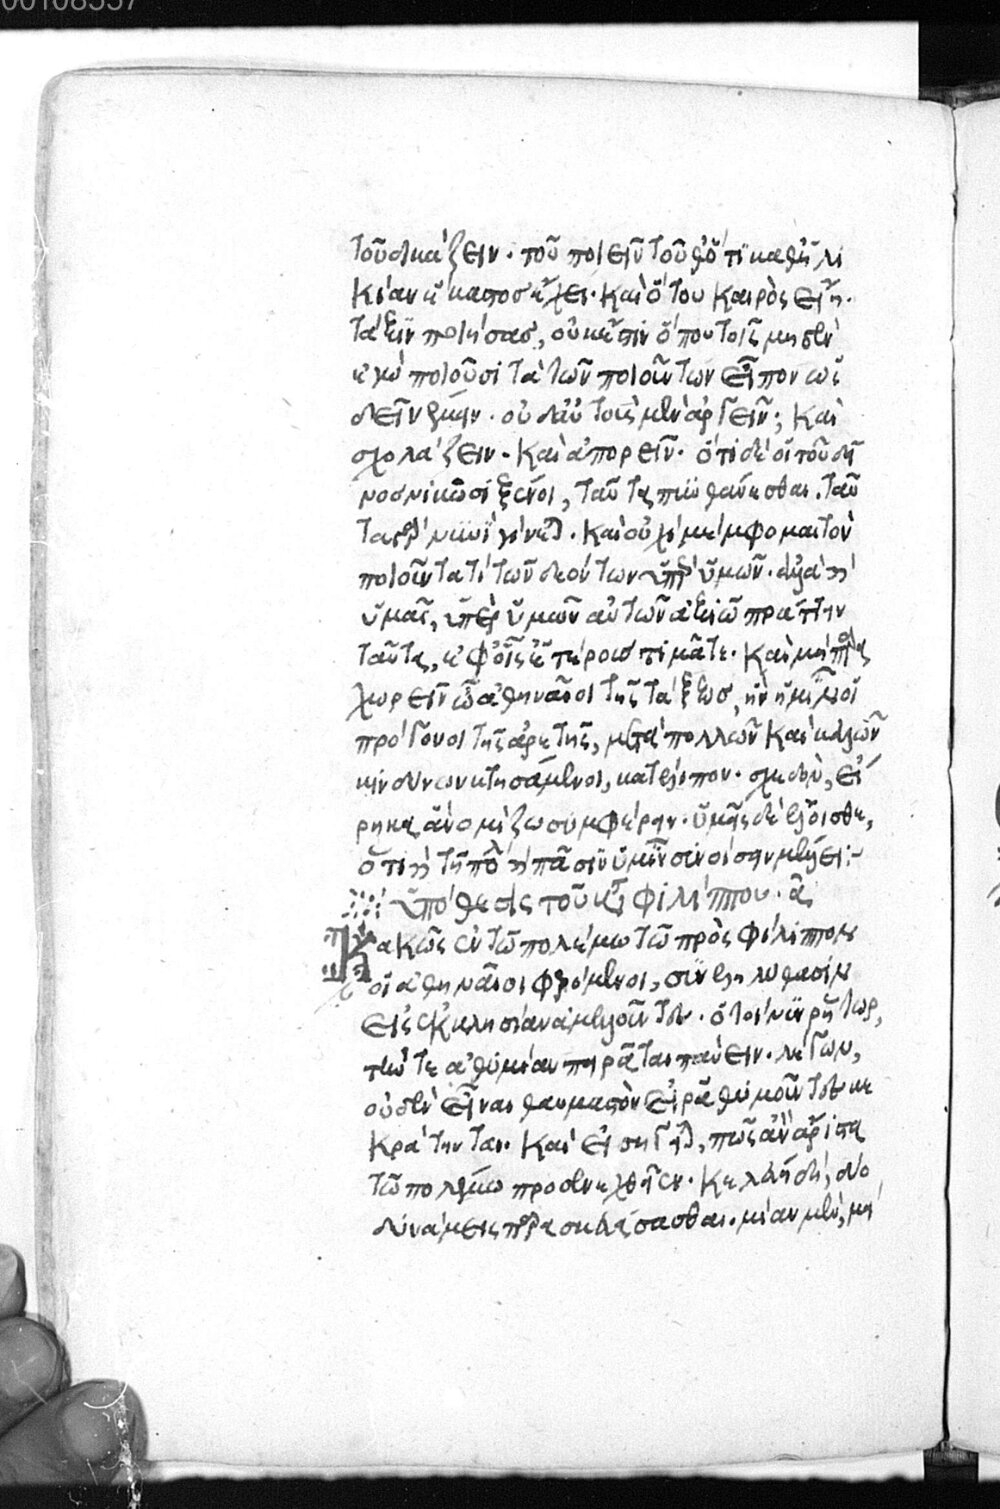 τοῦ δικάζειν· τοῦ ποιεῖν τοῦθ' ὅτι καθ' ἡλι
κίαν ἕκαστος ἔχει· καὶ ὅτου καιρὸς εἴη·
τάξιν ποιήσας, οὐκ ἔστιν ὅπου τοῖς μηδὲν
ἐγὼ ποιοῦσι τὰ τῶν ποιούντων εἶπον ὡς
δεῖ νέμειν· οὐδ' αὐτοὺς μὲν ἀργεῖν; καὶ
σχολάζειν· καὶ ἀπορεῖν· ὅτι δὲ οἱ τοῦ δεῖ
νος νικῶσι ξένοι, ταῦτα πυνθάνεσθαι. ταῦ
τα γὰρ νυνὶ γίνεται· καὶ οὐχὶ μέμφομαι τὸν
ποιοῦντά τι τῶν δεόντων ὑπὲρ ὑμῶν· ἀλλὰ καὶ
ὑμᾶς, ὑπὲρ ὑμῶν αὐτῶν ἀξιῶ πράττειν
ταῦτα, ἐφ' οἷς ἑτέρους τιμᾶτε· καὶ μὴ παρα
χωρεῖν ὦ ἀθηναῖοι τῆς τάξεως, ἣν ἡμῖν οἱ
πρόγονοι τῆς ἀρετῆς, μετὰ πολλῶν καὶ καλῶν
κινδύνων κτησάμενοι, κατέλιπον· σχεδὸν, εἴ
ρηκα ἃ νομίζω συμφέρειν· ὑμεῖς δὲ ἕλοισθε,
ὅτι καὶ τῆ πόλει καὶ πᾶσιν ὑμῖν συνοίσειν μέλλει:~
ὑπόθεσις τοῦ κατὰ φιλίππου· α
Κακῶς ἐν τῶ πολέμω τῶ πρὸς φίλιππον
οἱ ἀθηναῖοι φερόμενοι, συνεληλύθασιν
εἰς ἐκκλησίαν ἀθυμοῦντες· ὅ τοίνυν ῥήτωρ,
τήν τε ἀθυμίαν πειρᾶται παύειν· λέγων,
οὐδὲν εἶναι θαυμαστὸν εἰ ῥαθυμοῦντες κε
κράτηνται· καὶ εἰσηγεῖται, πῶς ἂν ἄριστα
τῶ πολέμω προσενεχθεῖεν· κελεύει δὲ, δύο
δυνάμεις παρασκευάσασθαι· μίαν μὲν, μεί